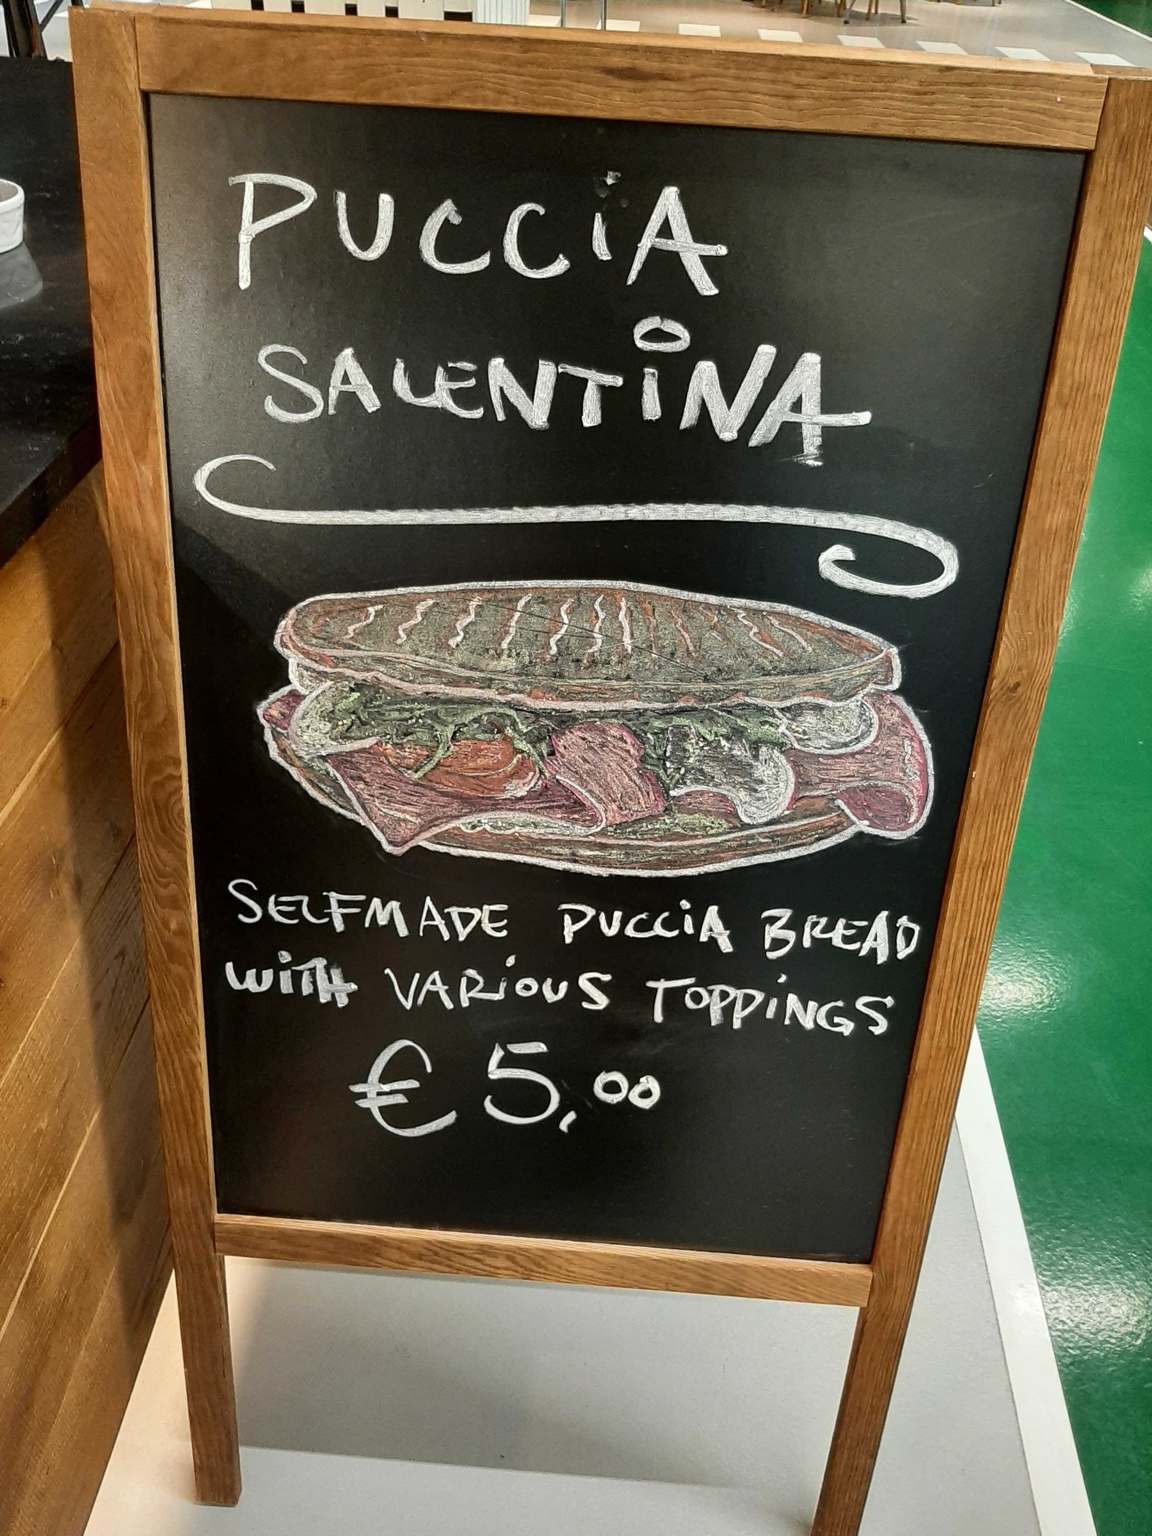 PUCCiA
SALENTiNA
SELFMADE PUCCiA BREAD
WiTH VARiOUS TOPPiNGS
€ 5,00